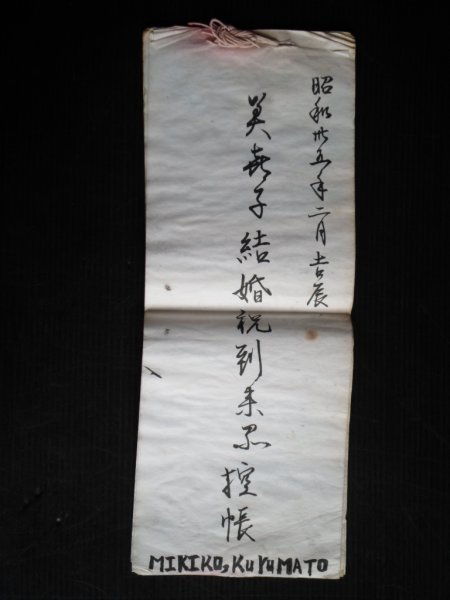 昭和卅五年二月吉辰
美喜子結婚祝到来品控帳
MIKIKO, KuruMATO